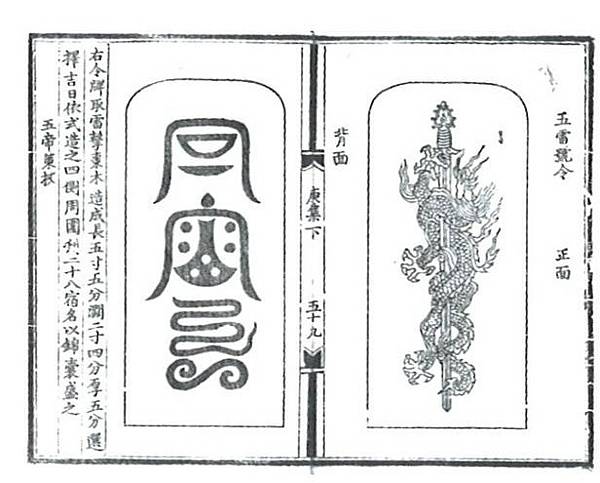 五雷號令
正面
背面
庚集下
五十九
右令牌取雷擊棗木造成長五寸五分濶二寸四分厚五分選
擇吉日依式造之四側周圍刋二十八宿名以錦囊盛之
五帝